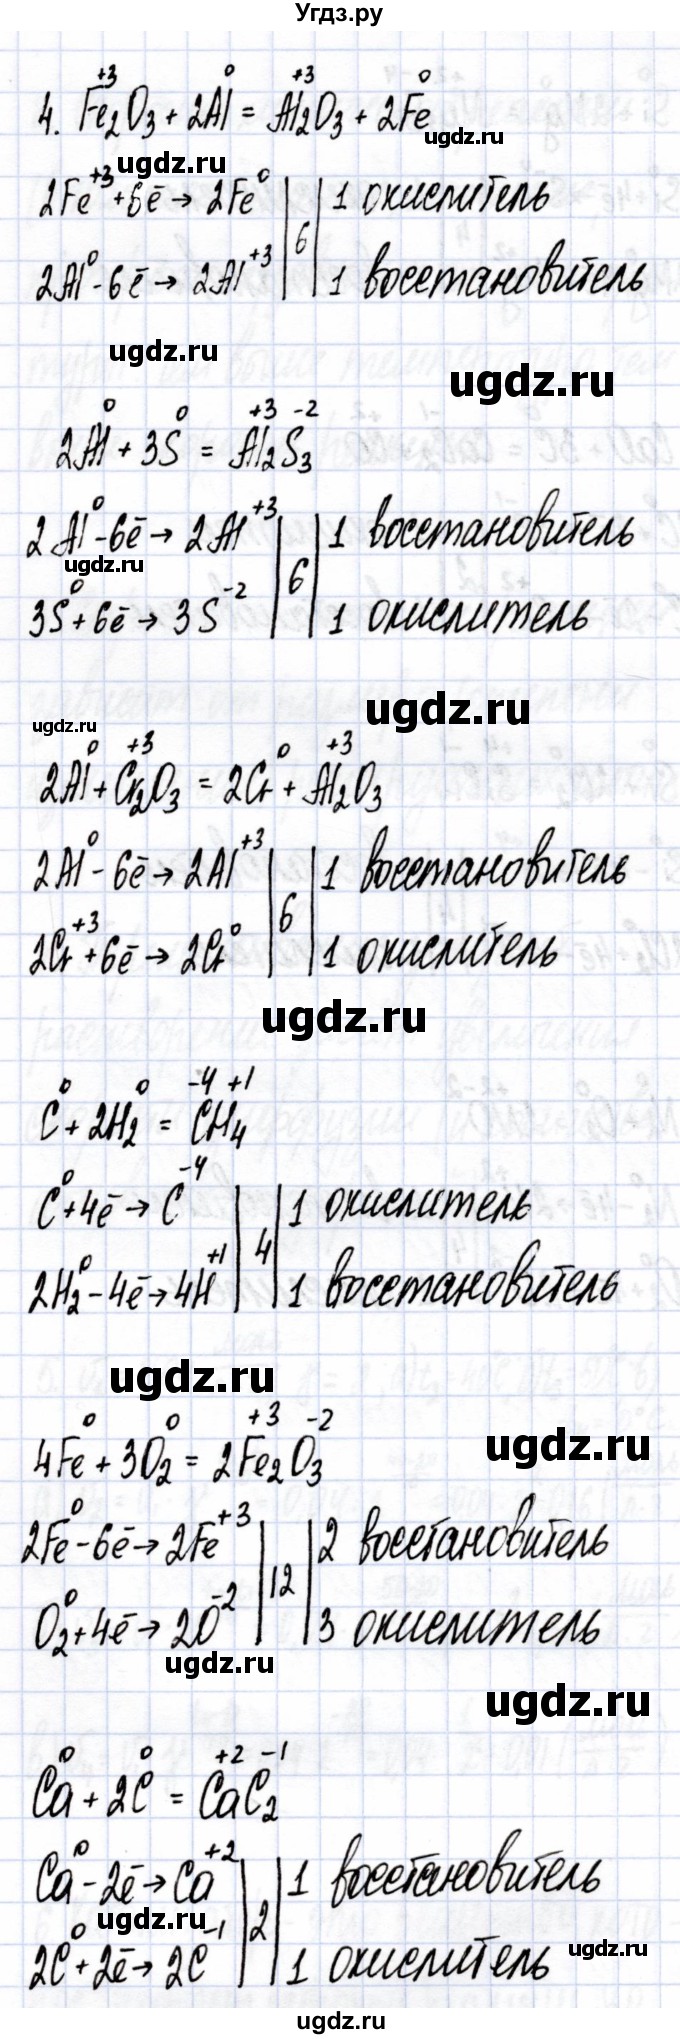 Угдз.ру
4. Fe₂⁺³O₃ + 2Al⁰ = Al₂⁺³O₃ + 2Fe⁰
ugdz.ru
ugdz.ru
2Fe⁺³ + 6ē → 2Fe⁰ | 6 | 1 окислитель
2Al⁰ - 6ē → 2Al⁺³ | 1 восстановитель
ugdz.ru
ugdz.ru
2Al⁰ + 3S⁰ = Al₂⁺³S₃⁻²
2Al⁰ - 6ē → 2Al⁺³ | 6 | 1 восстановитель
ugdz.ru
3S⁰ + 6ē → 3S⁻² | 1 окислитель
ugdz.ru
ugdz.ru
2Al⁰ + Cr₂⁺³O₃ = 2Cr⁰ + Al₂⁺³O₃
2Al⁰ - 6ē → 2Al⁺³ | 6 | 1 восстановитель
2Cr⁺³ + 6ē → 2Cr⁰ | 1 окислитель
ugdz.ru
C⁰ + 2H₂⁰ = C⁻⁴H₄⁺¹
C⁰ + 4ē → C⁻⁴ | 4 | 1 окислитель
2H₂⁰ - 4ē → 4H⁺¹ | 1 восстановитель
ugdz.ru
4Fe⁰ + 3O₂⁰ = 2Fe₂⁺³O₃⁻²
ugdz.ru
2Fe⁰ - 6ē → 2Fe⁺³ | 12 | 2 восстановитель
O₂⁰ + 4ē → 2O⁻² | 3 окислитель
ugdz.ru
ugdz.ru
Ca⁰ + 2C⁰ = Ca⁺²C₂⁻¹
Ca⁰ - 2ē → Ca⁺² | 2 | 1 восстановитель
ugdz.ru
2C⁰ + 2ē → 2C⁻¹ | 1 окислитель
ugdz.ru
ugdz.ru